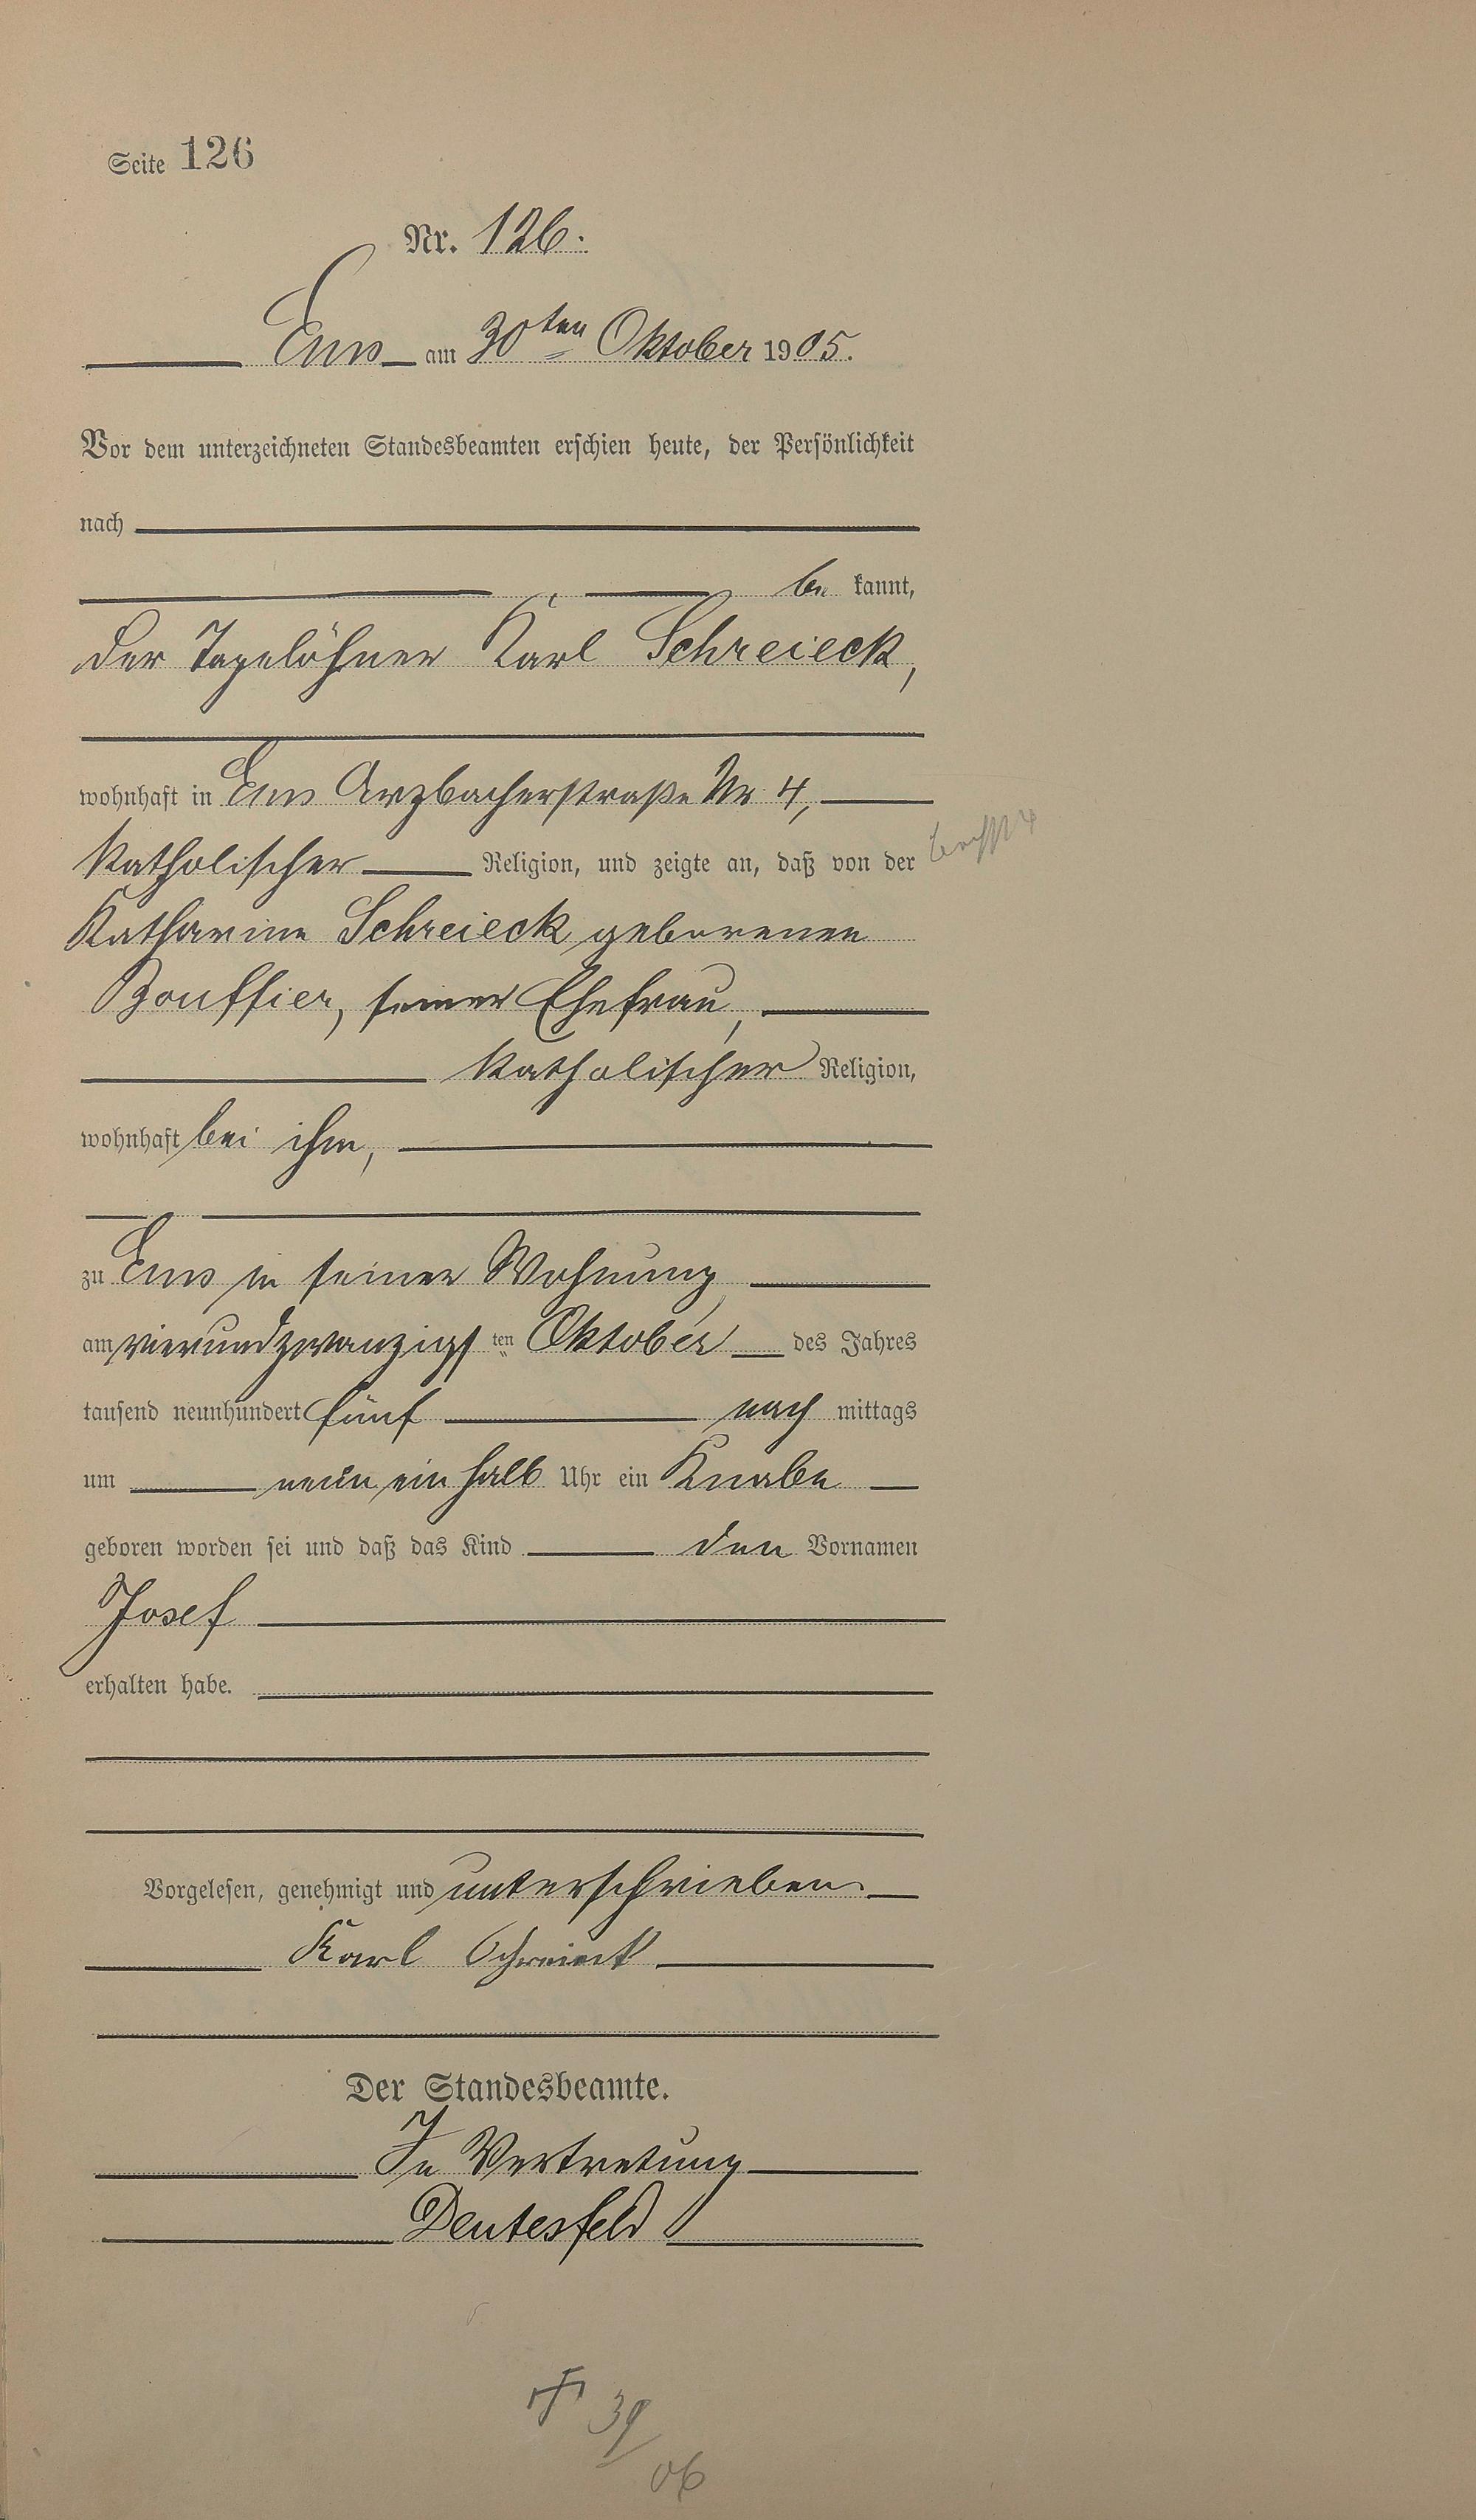 Seite 126
Nr. 126.
Ems am 30ten Oktober 1905.
Vor dem unterzeichneten Standesbeamten erschien heute, der Persönlichkeit
nach
be kannt,
der Tagelöhner Karl Schreieck,
wohnhaft in Ems Arzbacherstraße Nr 4,
katholischer Religion, und zeigte an, daß von der
Katharina Schreieck geborenen
Bouffier, seiner Ehefrau,
katholischer Religion,
wohnhaft bei ihm,
zu Ems in seiner Wohnung,
am vierundzwanzigsten Oktober des Jahres
tausend neunhundert fünf nach mittags
um neun ein halb Uhr ein Knabe
geboren worden sei und daß das Kind den Vornamen
Josef
erhalten habe.
Vorgelesen, genehmigt und unterschrieben.
Karl Schreieck
Der Standesbeamte.
In Vertretung
Deutesfeld
† 39/06